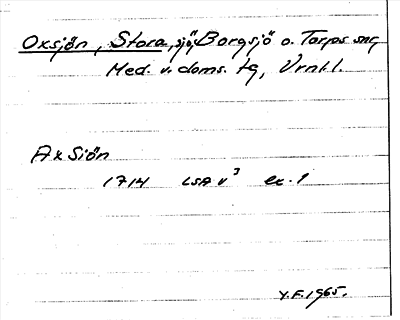 Oxsjön, Stora, sjö, Borgsjö o. Torps snr,
Med. v. doms. tg, Vrnl.l.
Ax Siön
1714 LSA V³ ex. 1
Y.F. 1965.